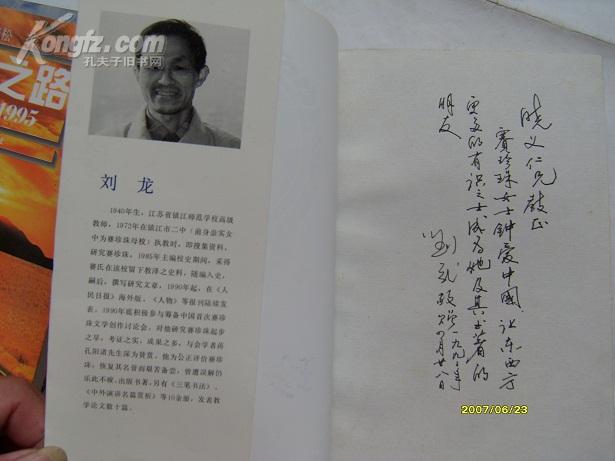 松
之路
1995
Kongfz.com
孔夫子旧书网
刘 龙
1940年生，江苏省镇江师范学校高级
教师，1972年在镇江市二中（前身崇实女
中为赛珍珠母校）执教时，即搜集资料，
研究赛珍珠。1985年主编校史期间，采得
赛氏在该校留下教泽之史料，随编入史，
嗣后，撰写研究文章，1990年起，在《人
民日报》海外版、《人物》等报刊陆续发
表。1990年底积极参与筹备中国首次赛珍
珠文学创作讨论会。对他研究赛珍珠起步
之早，考证之实，成果之多，与会学者尚
孔阳诸先生深为赞赏。他为公正评价赛珍
珠，恢复其名誉而艰苦备尝，曾遭误解仍
乐此不疲。出版书著，另有《三笔书法》、
《中外演讲名篇赏析》等10余册，发表教
学论文数十篇。
晓义仁兄教正
赛珍珠女士钟爱中國，让东西方
更多的有识之士成为她及其书著的
朋友
刘龙敬赠
2007/06/23